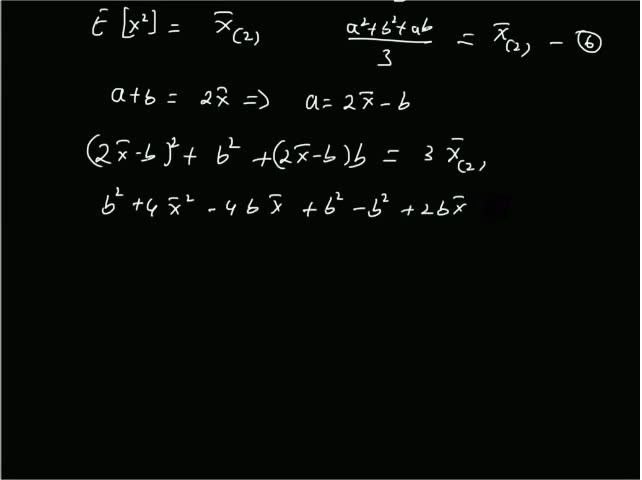 E[x²] = x̄₍₂₎    (a²+b²+ab)/3 = x̄₍₂₎ - ⑥
a+b = 2x̄ => a = 2x̄ - b
(2x̄-b)² + b² + (2x̄-b)b = 3 x̄₍₂₎
b² + 4x̄² - 4bx̄ + b² - b² + 2bx̄